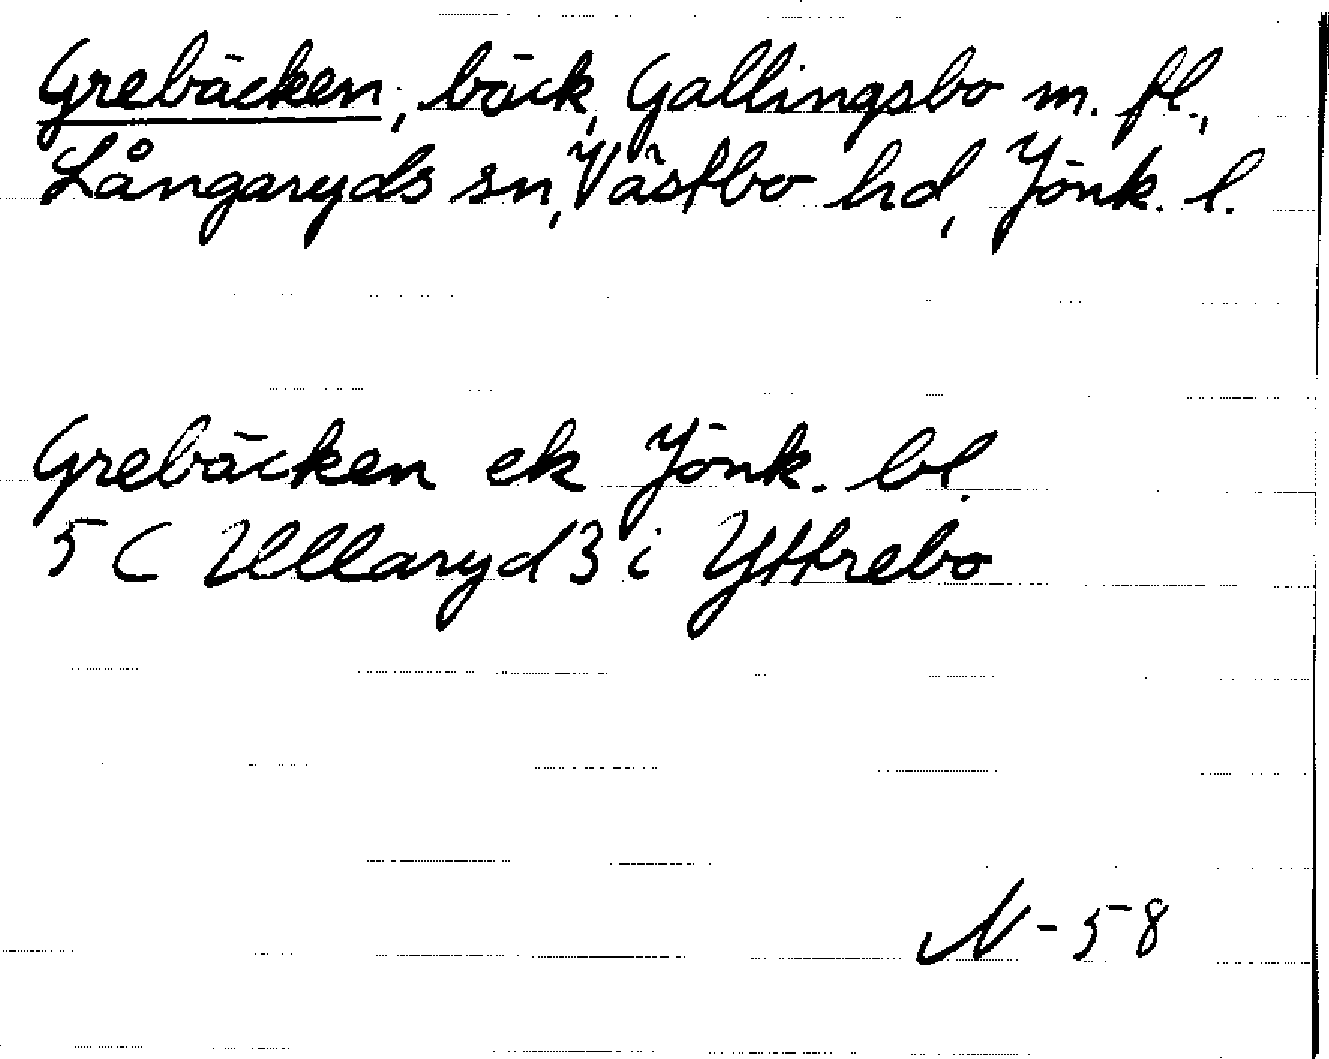 Grebäcken, bäck, Gallingsbo m. fl.,
Långaryds sn, Västbo hd, Jönk. l.
Grebäcken ek Jönk. bl.
5 C Ullaryd 3 i Yttrebo
N-58